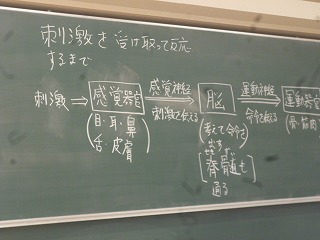 刺激を受け取って反応
するまで
刺激 ⇒ 感覚器官 感覚神経 → 脳 運動神経 ⇒ 運動器官
刺激を伝える 命令を伝える
(目・耳・鼻
舌・皮膚)
(考えて命令を
出す)
[脊骨直も
通る]
(骨・筋肉